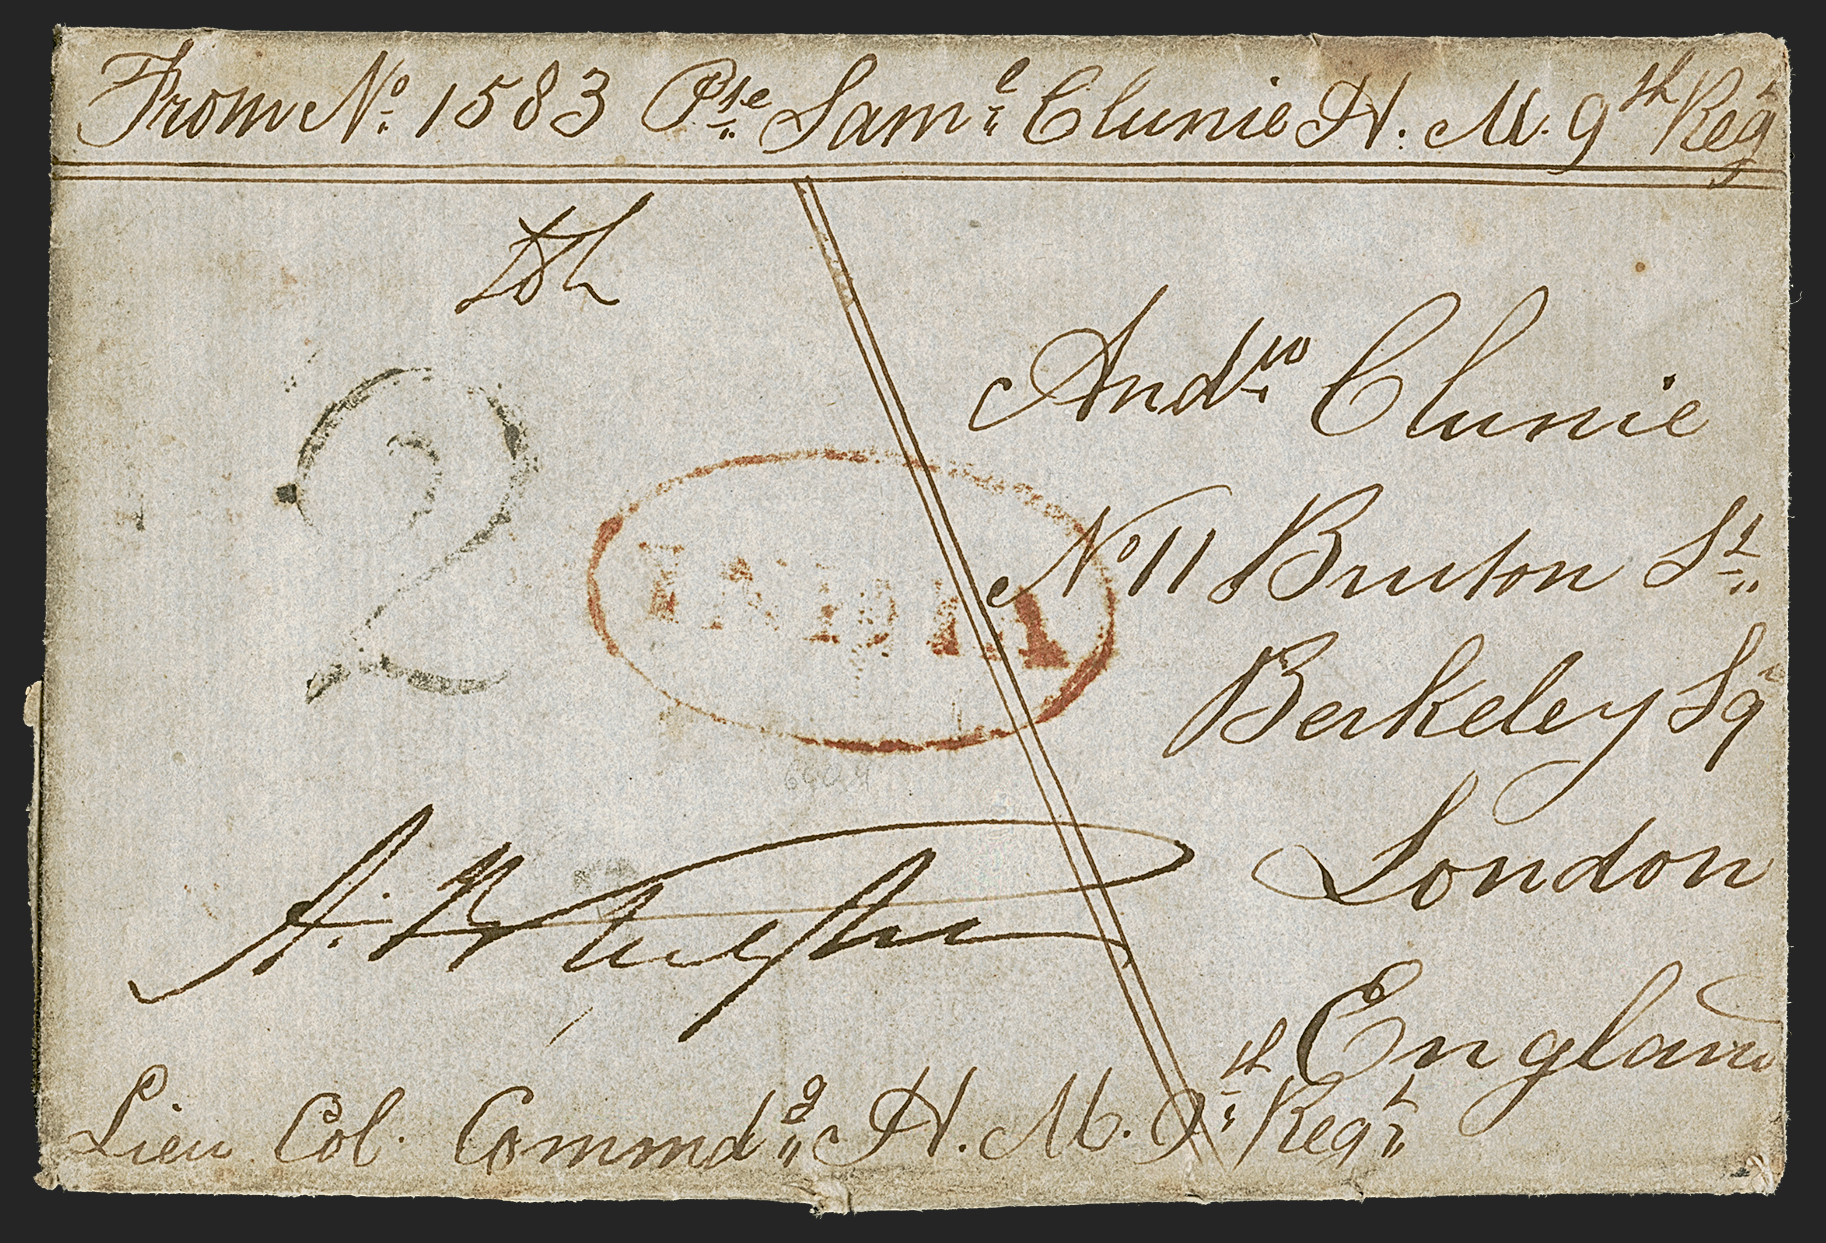 From No. 1583 Pte Saml Clunie H. M. 9th Regt
To
Andw Clunie
No 11 Bruton St
Berkeley Sqr
London
England
2
INDIA
A. B.
Lieu Col. Commdg H. M. 9th Regt